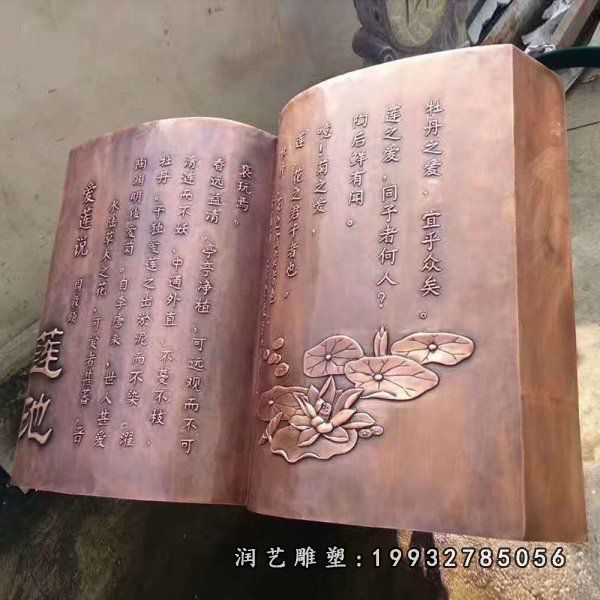 莲池
爱莲说 周敦颐
水陆草木之花，可爱者甚蕃。晋
陶渊明独爱菊。自李唐来，世人甚爱
牡丹。予独爱莲之出淤泥而不染，濯
清涟而不妖，中通外直，不蔓不枝，
香远益清，亭亭净植，可远观而不可
亵玩焉。
莲，花之君子者也。
噫！菊之爱，
陶后鲜有闻。
莲之爱，同予者何人？
牡丹之爱，宜乎众矣。
润艺雕塑:19932785056